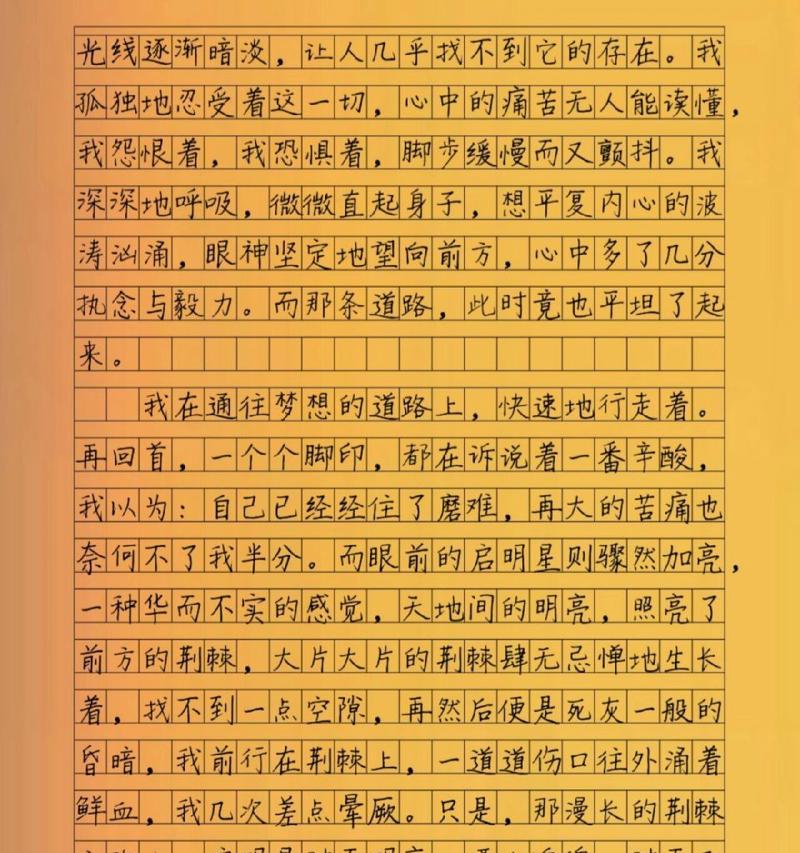 光线逐渐暗淡，让人几乎找不到它的存在。我
孤独地忍受着这一切，心中的痛苦无人能读懂，
我怨恨着，我恐惧着，脚步缓慢而又颤抖。我
深深地呼吸，微微直起身子，想平复内心的波
涛汹涌，眼神坚定地望向前方，心中多了几分
执念与毅力。而那条道路，此时竟也平坦了起
来。
我在通往梦想的道路上，快速地行走着。
再回首，一个个脚印，都在诉说着一番辛酸，
我以为：自己已经经住了磨难，再大的苦痛也
奈何不了我半分。而眼前的启明星则骤然加亮，
一种华而不实的感觉，天地间的明亮，照亮了
前方的荆棘，大片大片的荆棘肆无忌惮地生长
着，找不到一点空隙，再然后便是死灰一般的
昏暗，我前行在荆棘上，一道道伤口往外涌着
鲜血，我几次差点晕厥。只是，那漫长的荆棘